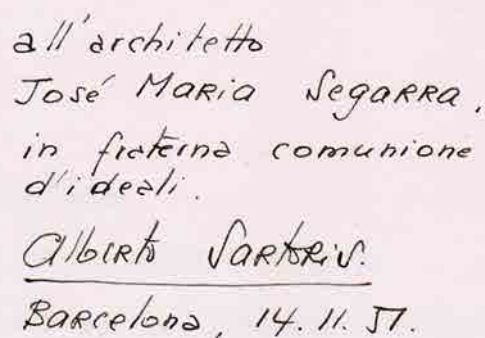 all'architetto
José Maria Segarra,
in fraterna comunione
d'ideali.
Alberto Sartoris.
Barcelona, 14.11.51.